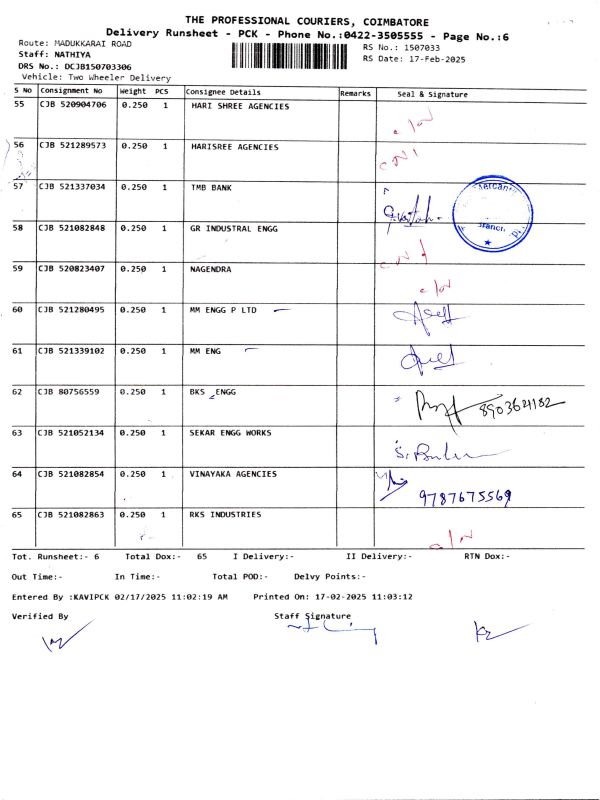 THE PROFESSIONAL COURIERS, COIMBATORE
Delivery Runsheet - PCK - Phone No.:0422-3505555 - Page No.:6
Route: MADUKKARAI ROAD
RS No.: 1507033
Staff: NATHIYA
RS Date: 17-Feb-2025
DRS No.: DCJB150703306
Vehicle: Two Wheeler Delivery
S No Consignment No Weight PCS Consignee Details Remarks Seal & Signature
55 CJB 520904706 0.250 1 HARI SHREE AGENCIES
56 CJB 521289573 0.250 1 HARISREE AGENCIES
57 CJB 521337034 0.250 1 TMB BANK
58 CJB 521082848 0.250 1 GR INDUSTRAL ENGG
59 CJB 520823407 0.250 1 NAGENDRA
60 CJB 521280495 0.250 1 MM ENGG P LTD
61 CJB 521339102 0.250 1 MM ENG
62 CJB 80756559 0.250 1 BKS ENGG 8903621182
63 CJB 521052134 0.250 1 SEKAR ENGG WORKS
64 CJB 521082854 0.250 1 VINAYAKA AGENCIES 9787675569
65 CJB 521082863 0.250 1 RKS INDUSTRIES
Tot. Runsheet:- 6 Total Dox:- 65 I Delivery:- II Delivery:- RTN Dox:-
Out Time:- In Time:- Total POD:- Delvy Points:-
Entered By :KAVIPCK 02/17/2025 11:02:19 AM Printed On: 17-02-2025 11:03:12
Verified By Staff Signature